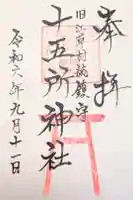 奉拝
旧江戸村総鎮守
十五所神社
令和六年九月十一日